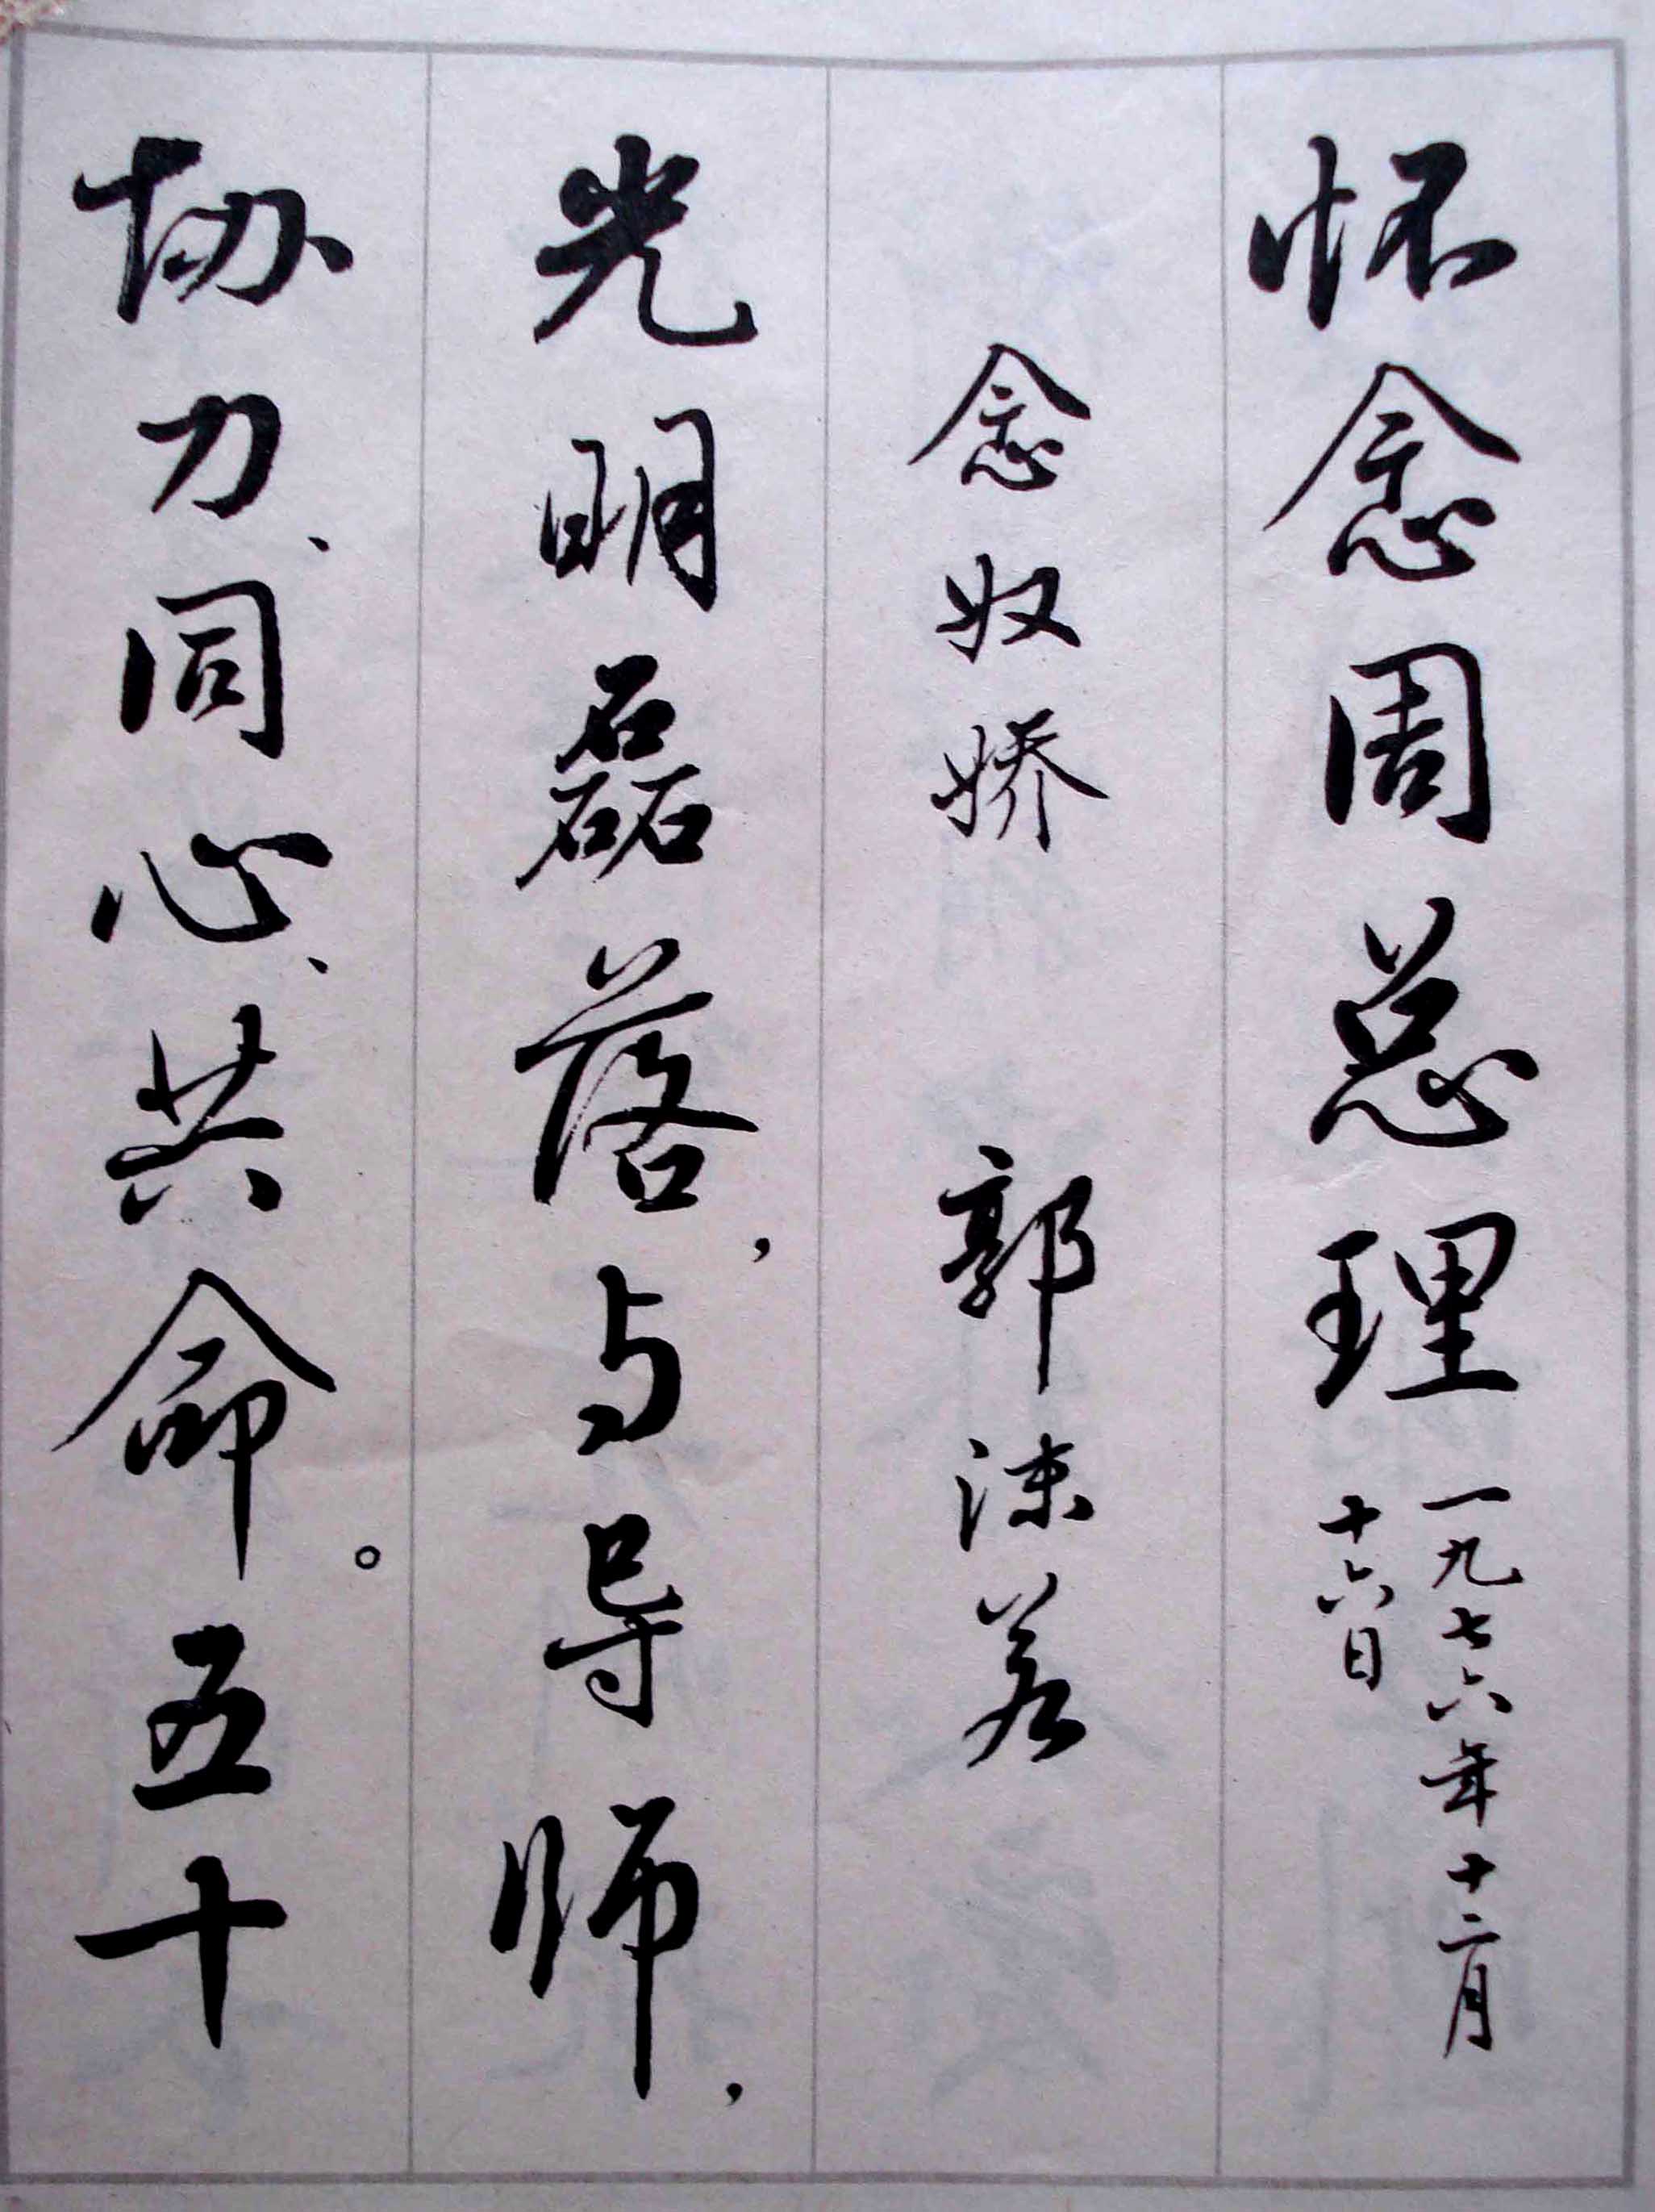 怀念周总理
一九七六年十二月
十六日
念奴娇 郭沫若
光明磊落，与导师，
协力、同心、共命。五十